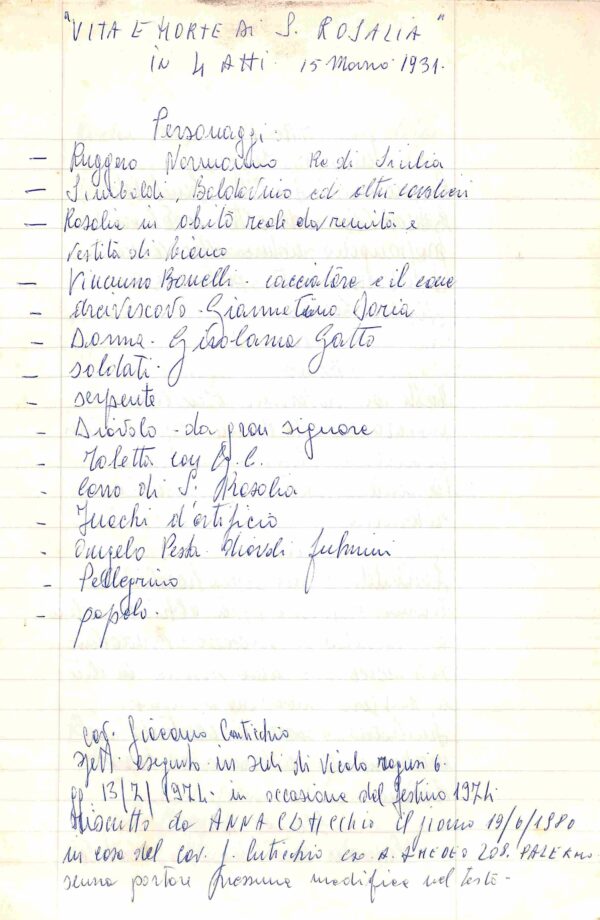 "VITA E MORTE DI S. ROSALIA"
IN 4 Atti. 15 Marzo 1931.
Personaggi:
— Ruggero Normanno Re di Sicilia
— Sinibaldi, Baldovino ed altri cavalieri
— Rosalia in abito reale da eremita e
vestita di bianco
— Vincenzo Bonelli - cacciatore e il cane
– Arcivescovo - Giannettino Doria
– Donna - Girolama Gatto
– soldati.
– serpente
– Diavolo - da gran signore
- con
- Carro di S. Rosalia
- Fuochi d'artificio
- Angelo Pesta diavoli fulmini
- Pellegrino
- popolo.
Cav. Giacomo Cuticchio
Spett. eseguito in sede di Vicolo ragusi 6.
gg. 13/7/1974. in occasione del festino 1974.
Riscritto da ANNA CUTICCHIO il giorno 19/6/1980
in casa del cav. G. Cuticchio A. AMEDEO 209. PALERMO.
senza portare nessuna modifica nel testo -